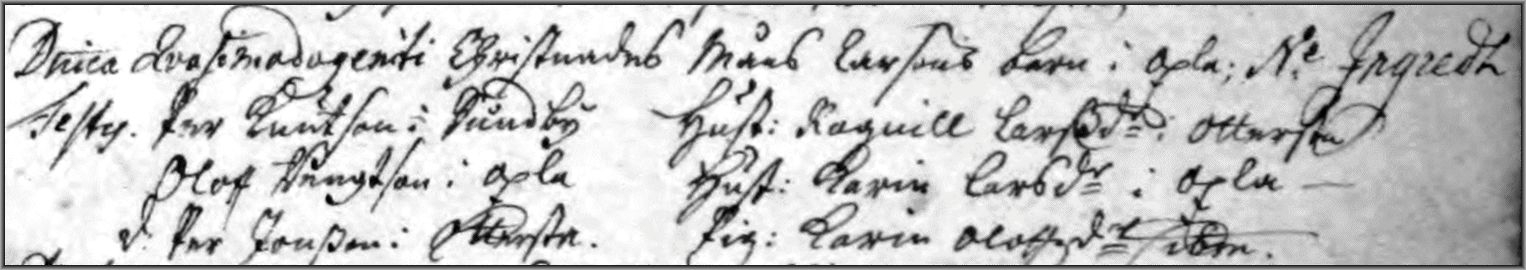 Dnica Qvasimodogeniti Christnades Måns Larsons barn i Opla; N:e Ingredh
Testes. Per Knutson i Sundby Hust: Ragnill Larsd:r i Ottersta
Olof Bengtson i Opla Hust: Karin Larsd:r i Opla —
d. Per Jonßon i Ottersta. Pig: Karin Olofsd:r ibm.